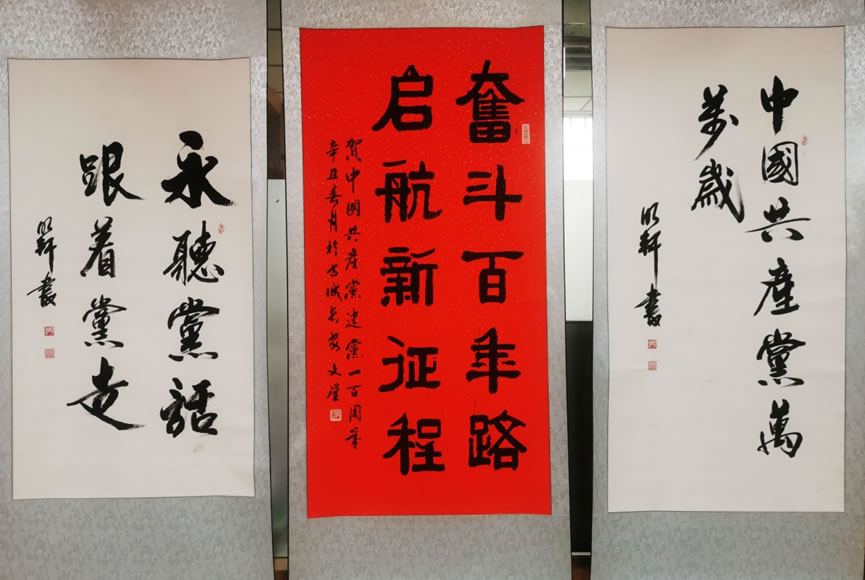 中國共産黨萬
萬歲
明軒書
奮斗百年路
启航新征程
賀中國共產黨建黨一百周年
辛丑春月於古城長安文
永聽黨話
跟着黨走
明軒書